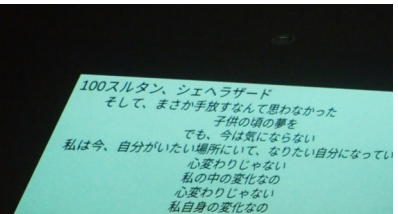 100スルタン、シェヘラザード
そして、まさか手放すなんて思わなかった
子供の頃の夢を
でも、今は気にならない
私は今、自分がいたい場所にいて、なりたい自分になってい
心変わりじゃない
私の中の変化なの
心変わりじゃない
私自身の変化なの